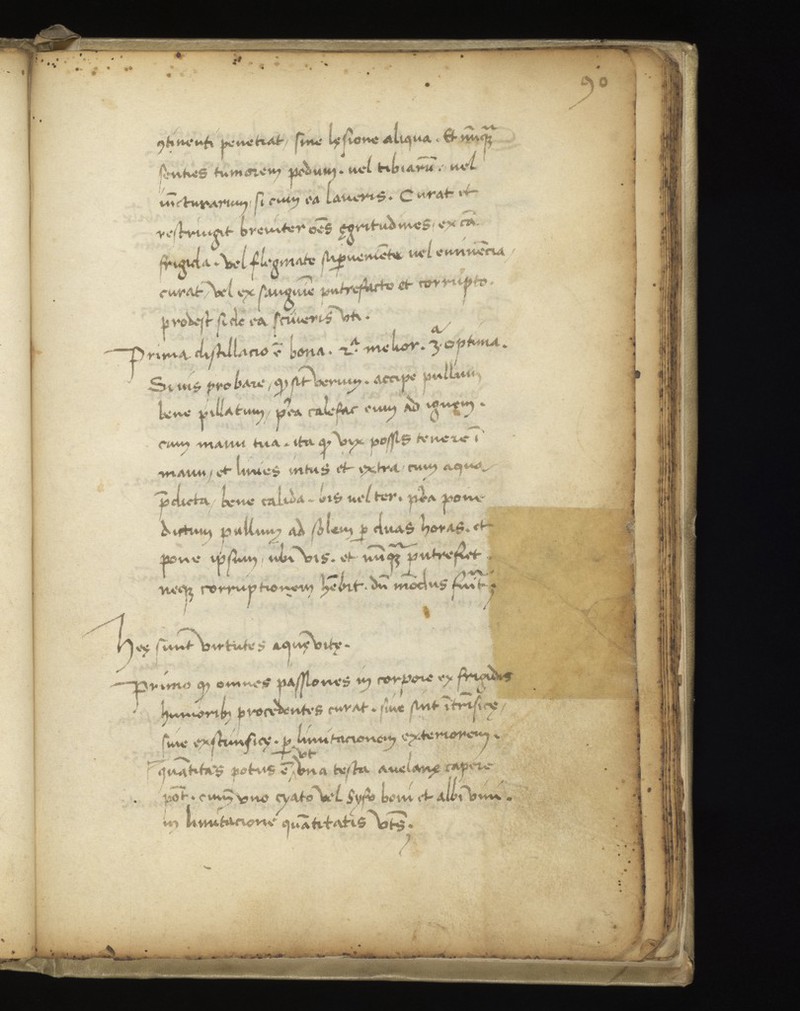 90
ꝯtinenti penetrat / sine lęsione aliqua . Et nūqꝫ
senties tumorem pedum . vel tibiarū . vel
iūcturarum / si cum ea laveris . Curat et
restringit breviter oēs ęgritudines / ex cā
frigida . vel flegmate supveniēte vel eminēcia /
curat / vel ex sanguīe putrefacto et corrupto .
prodest si de ea sciveris uti .
Prima distillacio ē bona . 2ᵃ melior . 3ᵃ optima .
Si vis probare / qͥ sit verum . accipe pullum
bene pillatum / pᵒea calefac eum ad ignem .
cum manu tua . ita qͥ vix possis tenere ī
manu / et linies intus et extra / cum aqua
p̄dicta / bene calida . bis vel ter . pᵒea pone
dictum pullum ad solem ꝑ duas horas . et
pone ipsum / ubi vis . et nūqꝫ putrefiet .
neqꝫ corruptionem hēbit . dū mōdus fuīt
Hęc sunt virtutes aquę vitę .
Primo qͥ omnes passiones in corpore ex frigidis
humoribꝫ procedentes curat . sive sint ītrīsicę /
sive exstrinsicę . ꝑ linitacionem exteriorem .
quātitas potus ē / ut una testa avelanę capere
pōt . cum uno cyato vel syfo boni et albi vini .
in linitacione quātitatis vts̄ .